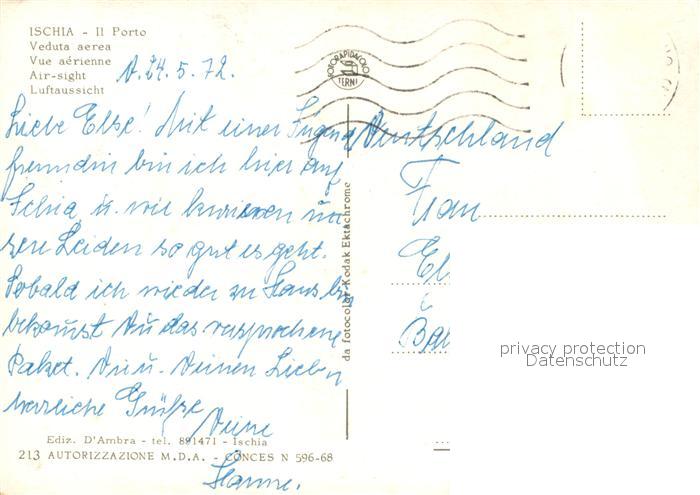 ISCHIA - Il Porto
Veduta aerea
Vue aérienne
Air-sight
Luftaussicht
d. 24.5.72.
FOTORAPIDACOLOR
TERNI
Liebe Else! Mit einer Jugend
freundin bin ich hier auf
Ischia u. wir kurieren un
sere Leiden so gut es geht.
Sobald ich wieder zu Haus bin
bekomst Du das versprochene
Paket. Dir u. Deinen Lieben
herzliche Grüße
Deine
Hanne.
Deutschland
Frau
El
Bad
da fotocolor Kodak Ektachrome
privacy protection
Datenschutz
Ediz. D'Ambra - tel. 891471 - Ischia
213 AUTORIZZAZIONE M.D.A. - CONCES N 596-68